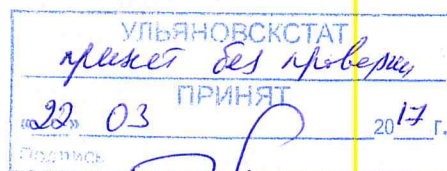 УЛЬЯНОВСКСТАТ
принят без проверки
ПРИНЯТ
«22» 03 2017 г.
Подпись